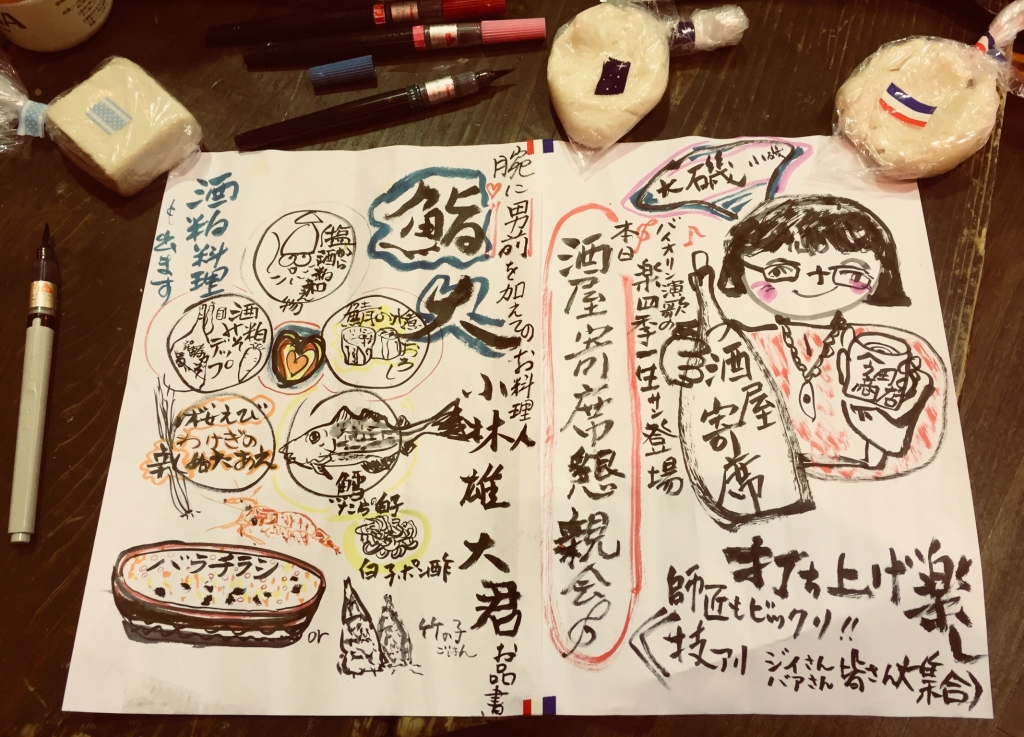 大磯
本日
バイオリン演歌の
楽四季一生サン登場
酒屋寄席懇親会の
酒屋
寄席
打ち上げ楽し
師匠もビックリ!!
技アリ
ジイさん
バアさん
皆さん大集合
腕に男前を加えてのお料理人
鮨
大
小林雄大君
お品書
酒粕料理
も出ます
塩から
酒粕
和え物
酒粕
ディップ
桜えび
わけぎの
ぬたあえ
鱈
たら白子
白子ポン酢
バラチラシ
or
竹の子
ごはん